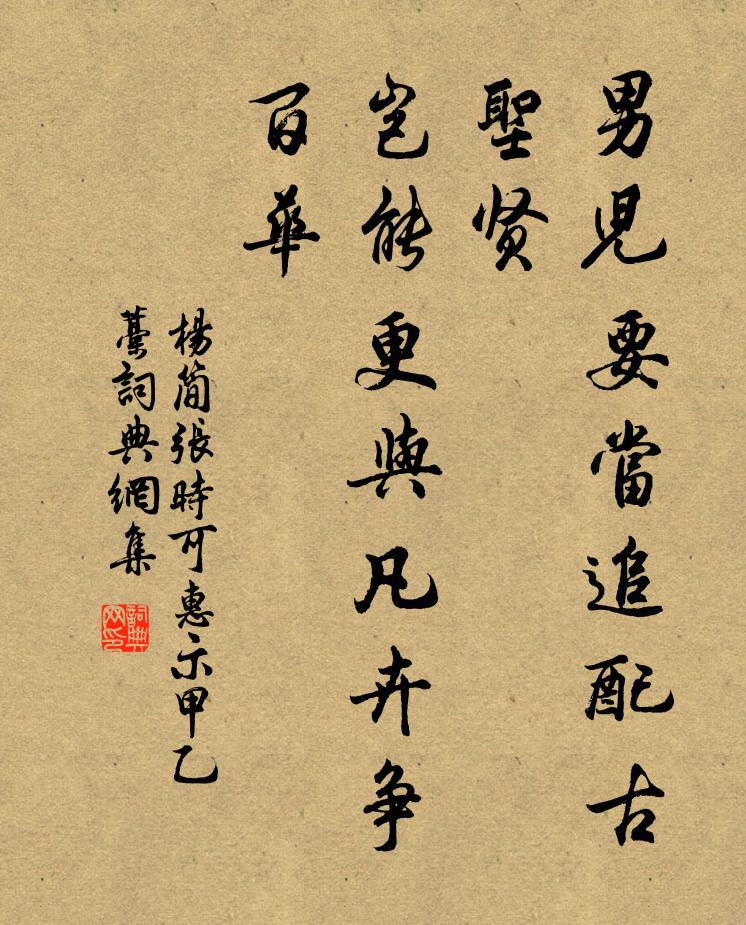 男兒要當追配古
聖贤
岂能更與凡卉争
百華
楊简張時可惠示甲乙
藁詞典網集
詞典
网印